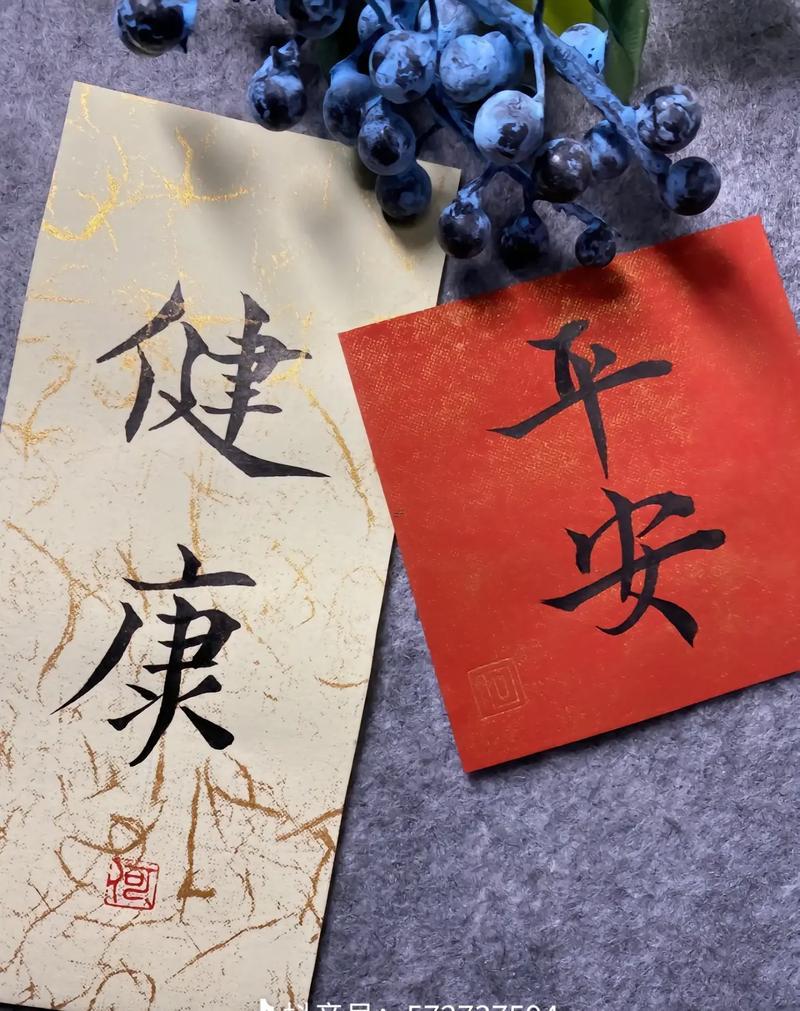 健康
平安
何
何
抖音号：573737504